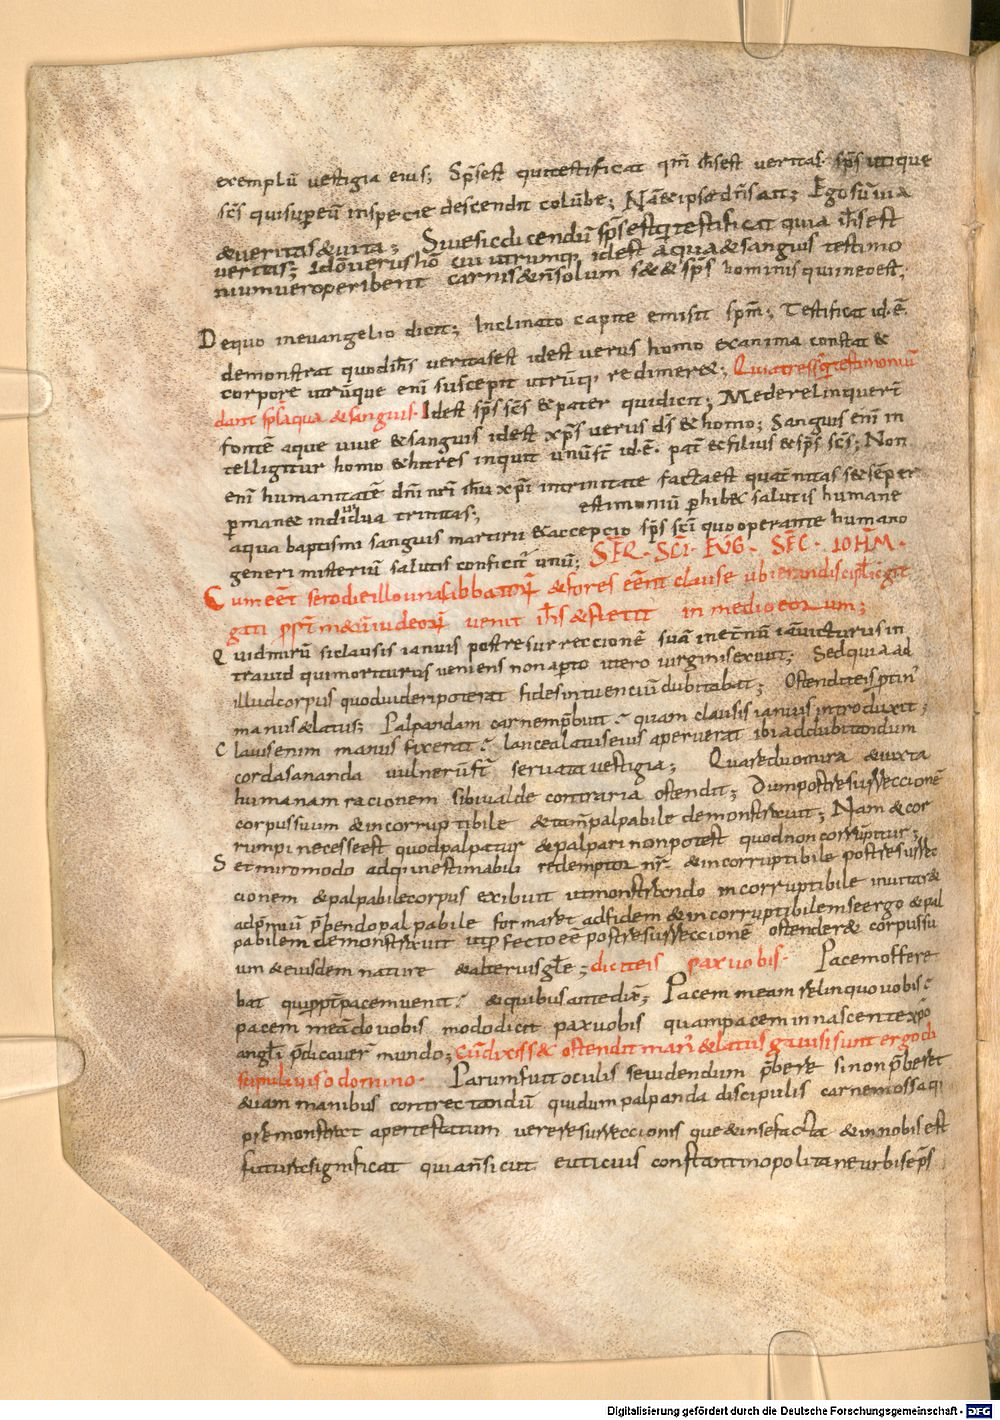 exemplū vestigia eius; Sp̄s est qui testificat qm̄ ih̄s est veritas. sp̄s utique
sc̄s qui sup eū in specie descendit colūbe; Nā & ipse dn̄s ait; Ego sū via
& veritas & vita; Sive sic dicendū sp̄s est qui testificat quia ih̄s est
veritas; Id ō verus hō cui utrumq; id est aqua & sanguis testimo
nium vero peribent carnis & n̄ solum s& & sp̄s hominis qui in eo est,
De quo in evangelio dicit; Inclinato capite emisit sp̄m; Testificat id .ē.
demonstrat quod ih̄s veritas est id est verus homo ex anima constat &
corpore utrūque enī suscepit utrūq, redimere&; Quia tres s̄ qui testimoniū
dant sp̄s aqua & sanguis. Id est sp̄s sc̄s & pater qui dicit; Me dereliquerī
fontē aque vive & sanguis id est xp̄s verus ds̄ & homo; Sanguis enī in
telligitur homo & hii tres inquit unū st̄ id .ē. pat̄ & filius & sp̄s sc̄s; Non
enī humanitatē dn̄i nr̄i ih̄u xp̄i in trinitate facta est quat̄nitas s& sēper
pman& indiuidua trinitas; estimoniū phib& salutis humane
aqua baptismi sanguis martirii & accepcio sp̄s sc̄i quo operante humano
generi misteriū salutis conficit̄ unū; SĒQ. SC̄I. EV̄G. SĒC. IOH̄M.
Cum eēt sero die illo una sabbatorū & fores eēnt clause ubi erant discipl̄i c̄gre
gati ppt̄ m&ū iudeorū venit ih̄s & stetit in medio eorum;
Quid mirū si clausis ianuis post resurreccionē suā in et̄nū iā victurus in
travit qui moriturus veniens non apto utero virginis exivit; Sed quia ad
illud corpus quod videri poterat fides intuenciū dubitabat; Ostendit eis ptin̄
manus & latus; Palpandam carnem p̄buit quam clausis ianuis introduxit;
Clavis enim manus fixerat lancea latus eius aperuerat ibi ad dubitandum
corda sananda vulnerū st̄ servata vestigia; Qua re duo mira & iuxta
humanam racionem sibi valde contraria ostendit; Dum post resurreccionē
corpus suum & incorruptibile & tam̄ palpabile demonstravit; Nam & cor
rumpi necesse est quod palpatur & palpari non potest quod non corrūpitur;
Set miro modo adq; inestimabili redemptor nr̄ & incorruptibile post resurrec
cionem & palpabile corpus exibuit ut monstrando incorruptibile invitar&
ad p̄miū p̄bendo palpabile formaret ad fidem & incorruptibilem se ergo & pal
pabilem demonstravit ut pfecto eē post resurreccionē ostender& corpus su
um & eiusdem nature & alterius gl̄e; dicit eis pax vobis. Pacem offere
bat qui ppt̄ pacem venit & quibus ante dix̄; Pacem meam relinquo vobis
pacem meā do vobis modo dicit pax vobis quam pacem in nascente xp̄o
angl̄i p̄dicaver̄ mundo; Cū dixiss& ostendit man̄ & latus gavisi sunt ergo di
scipuli viso domino. Parum fuit oculis se videndum p̄bere si non p̄beret
& iam manibus contrectandū qui dum palpanda discipulis carnem ossaq;
premonstrat aperte statum vere resurreccionis que & in se facta & in nobis est
futura significat quia n̄ sicut euticius constantinopolitane urbis ep̄s
Digitalisierung gefördert durch die Deutsche Forschungsgemeinschaft - DFG